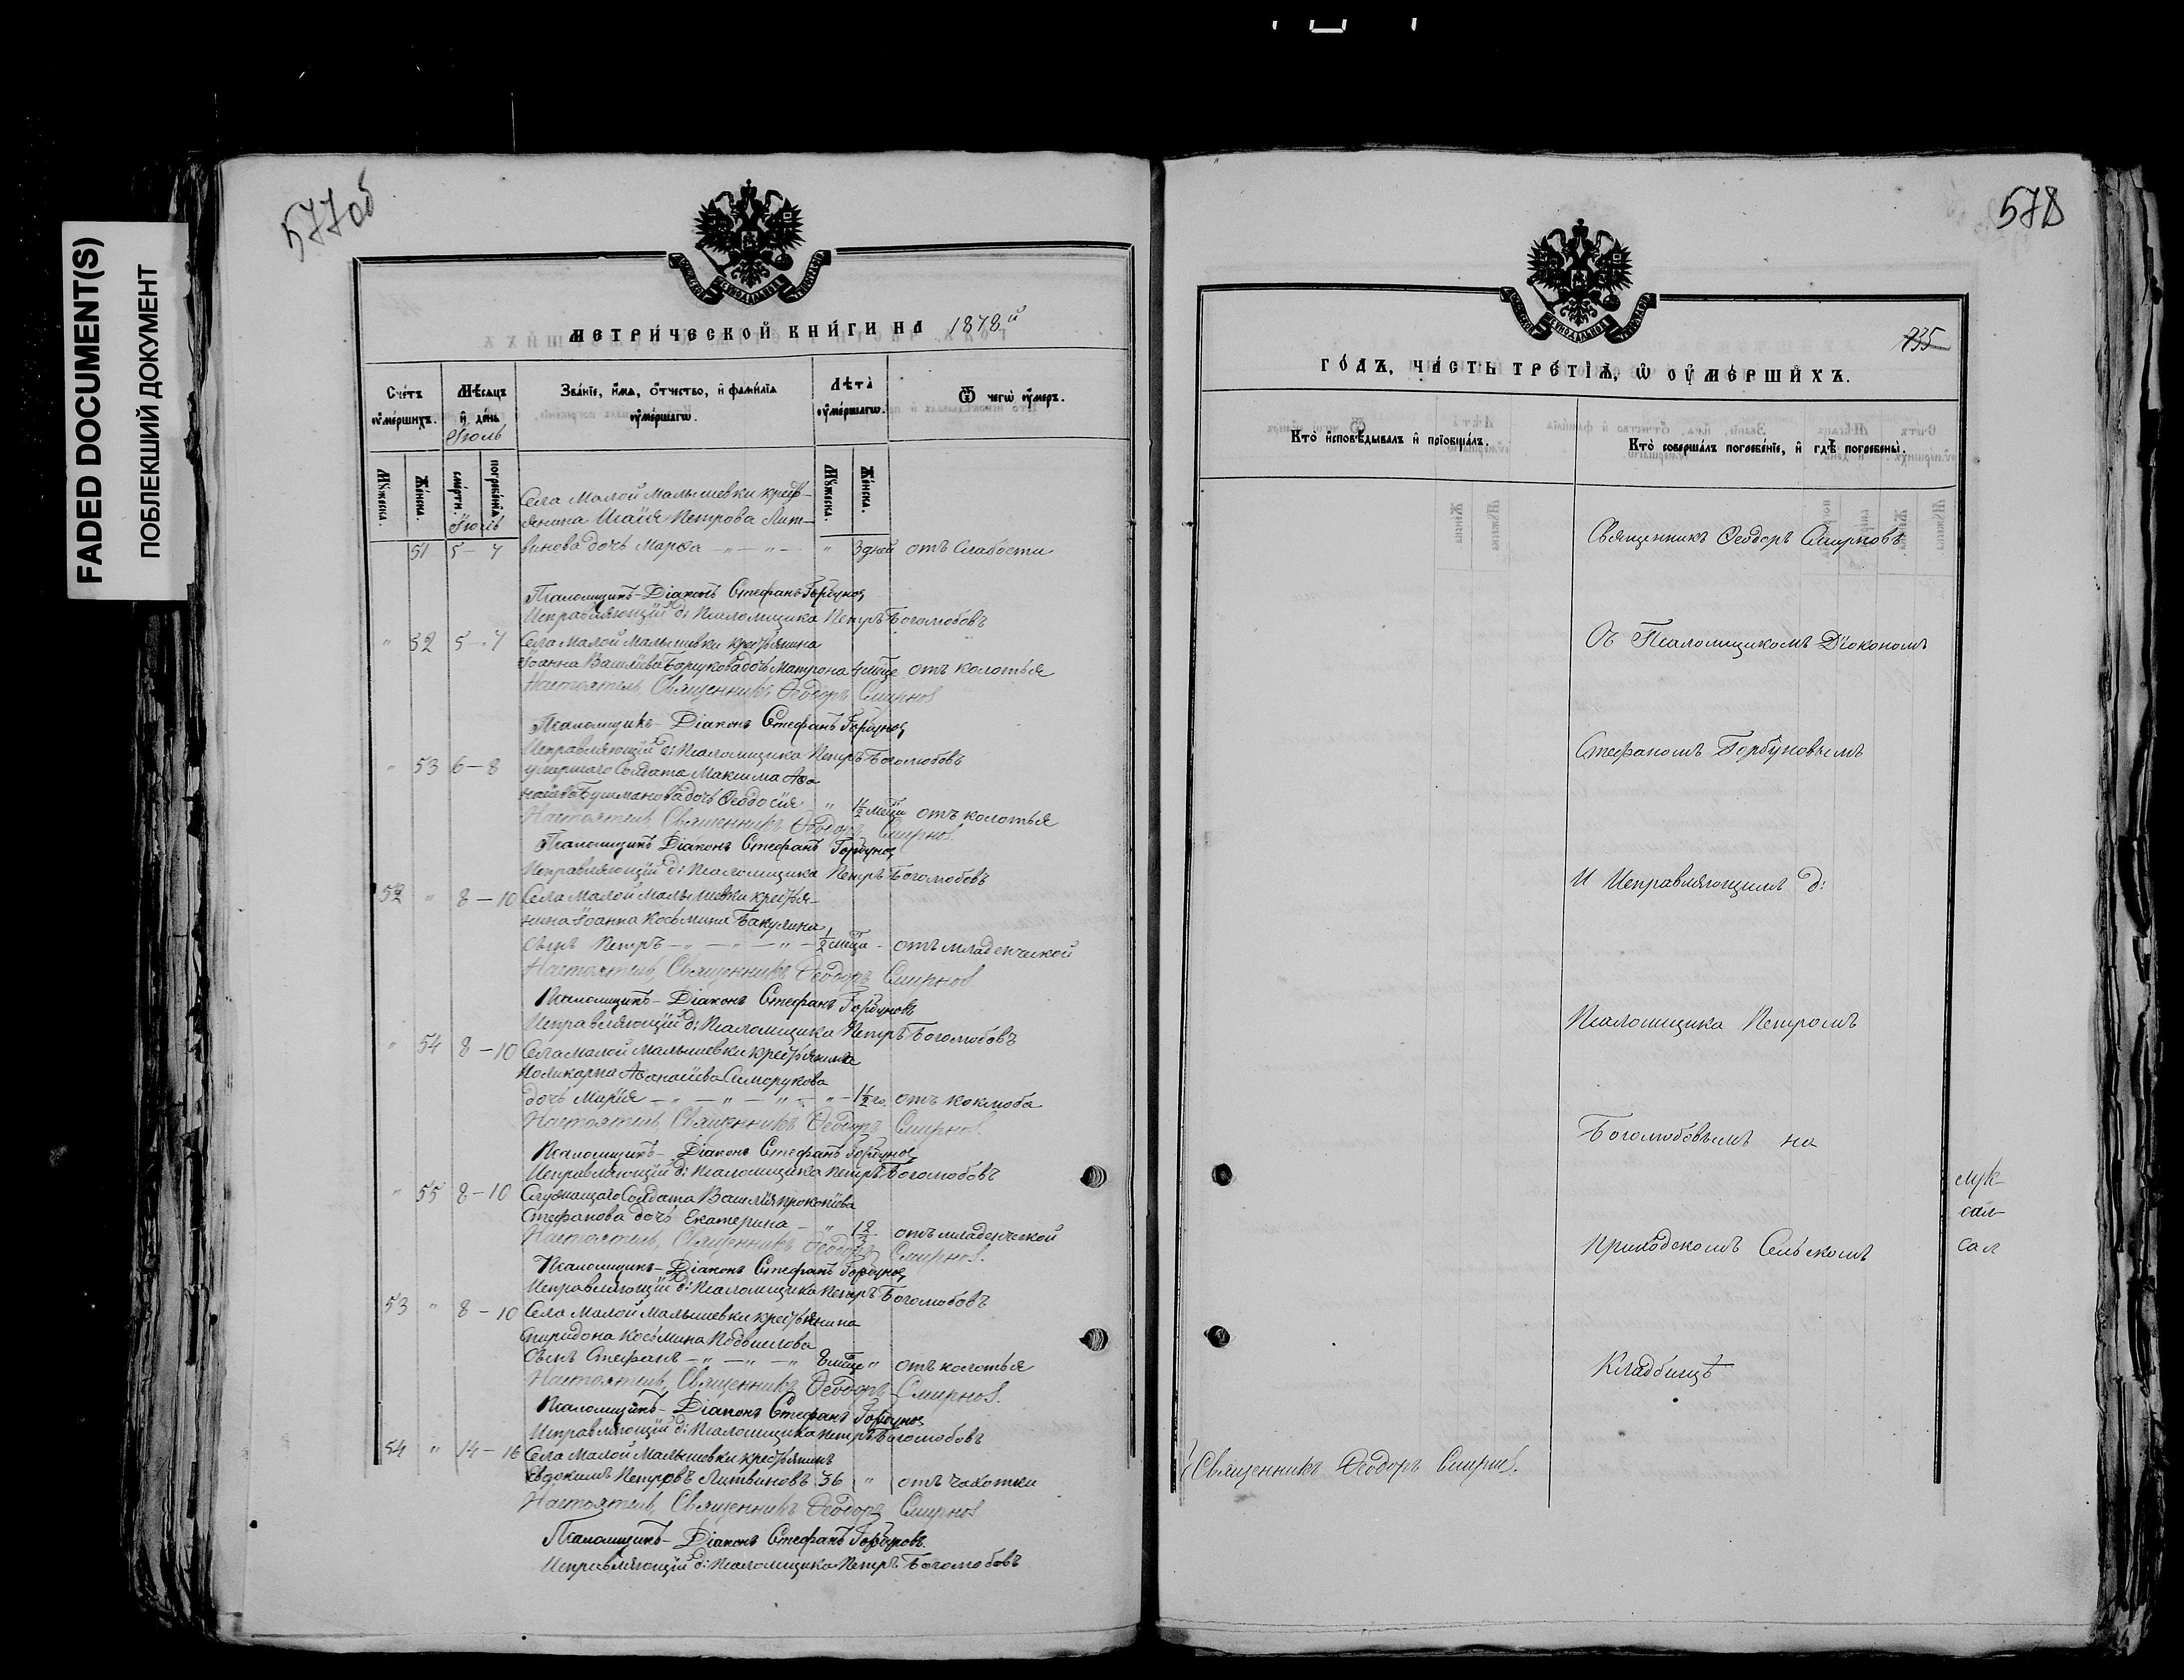 FADED DOCUMENT(S)
ПОБЛЕКШИЙ ДОКУМЕНТ
577об
МЕТРИ́ЧЕСКОЙ КНИ́ГИ НА 1878й
Сче́тъ ᲂу҆ме́ршихъ.
Мѣ́сѧцъ и҆ де́нь
Іюль
Зва́нїе, и҆́мѧ, ѻ҆́тчество, и҆ фамѵ́лїѧ ᲂу҆ме́ршагѡ.
Лѣ́та ᲂу҆ме́ршагѡ.
Ѿ чегѡ̀ ᲂу҆́меръ.
Мꙋ́жеска.
Же́нска.
сме́рти.
погребе́нїѧ.
Мꙋ́жеска.
Же́нска.
Іюль
Села Малой Малышевки кресть-
янина Исаія Петрова Лит-
51 5 – 7 винова дочь Марѳа – „ – „ – „ 3 дней отъ слабости
Псаломщикъ-Діаконъ Стефанъ Горбунов
Исправляющій д: Псаломщика Петръ Боголюбовъ
„ 52 5 – 7 Села Малой Малышевки крестьянина
Іоанна Василіева Борцукова дочь Матрона 4 мѣсе отъ колотья
Настоятель, Священникъ Ѳеодоръ Смирнов
Псаломщикъ-Діаконъ Стефанъ Горбунов
Исправляющій д: Псаломщика Петръ Боголюбовъ
„ 53 6 – 8 умершаго Солдата Максима Аѳа
насіева Бушманова дочь Ѳеодосія „ 1½ мѣсца отъ колотья
Настоятель, Священникъ Ѳеодоръ Смирнов.
Псаломщикъ Діаконъ Стефанъ Горбунов
Исправляющій д: Псаломщика Петръ Боголюбовъ
52 „ 8 – 10 Села Малой Малышевки крестья-
нина Іоанна Космина Бакулина
сынъ Петръ – „ – „ – „ – ½ мѣсца – отъ младенческой
Настоятель, Священникъ Ѳеодоръ Смирнов.
Псаломщикъ-Діаконъ Стефанъ Горбуновъ
Исправляющій д: Псаломщика Петръ Боголюбовъ
„ 54 8 – 10 Села Малой Малышевки крестьянина
Поликарпа Аѳанасіева Симорукова
дочь Марія – „ – „ – „ – „ – 1½ го. отъ коклюша
Настоятель, Священникъ Ѳеодоръ Смирнов.
Псаломщикъ-Діаконъ Стефанъ Горбунов
Исправляющій д: Псаломщика Петръ Боголюбовъ
„ 55 8 – 10 Служащаго Солдата Василія Прокопіева
Стефанова дочь Екатерина – „ отъ младенческой
Настоятель, Священникъ Ѳеодоръ Смирнов.
Псаломщикъ-Діаконъ Стефанъ Горбунов
Исправляющій д: Псаломщика Петръ Боголюбовъ
53 „ 8 – 10 Села Малой Малышевки крестьянина
Спиридона Космина
сынъ Стефанъ – „ – „ – „ 8 мѣсце „ отъ колотья
Настоятель, Священникъ Ѳеодоръ Смирнов.
Псаломщикъ-Діаконъ Стефанъ Горбунов
Исправляющій д: Псаломщика Петръ Боголюбовъ
54 „ 14 – 16 Села Малой Малышевки крестьянинъ
Евдокимъ Петровъ Литвиновъ 36 „ отъ чахотки
Настоятель, Священникъ Ѳеодоръ Смирнов
Псаломщикъ-Діаконъ Стефанъ Горбуновъ.
Исправляющій д: Псаломщика Петръ Боголюбовъ
578
735
ГО́ДЪ, ЧА́СТЬ ТРЕ́ТЇѦ, Ѡ҆ ᲂУ҆МЕ́РШИХЪ.
Кто̀ и҆сповѣ́дывалъ и҆ прїѡбща́лъ.
Кто̀ соверша́лъ погребе́нїе, и҆ гдѣ̀ погребены̀.
Священникъ Ѳеодоръ Смирновъ
Съ Псаломщикомъ Діокономъ
Стефаномъ Горбуновымъ
И Исправляющимъ д:
Псаломщика Петромъ
Боголюбовымъ на
Приходскомъ Сельскомъ
Кладбищѣ
Священникъ Ѳеодоръ Смирнов.